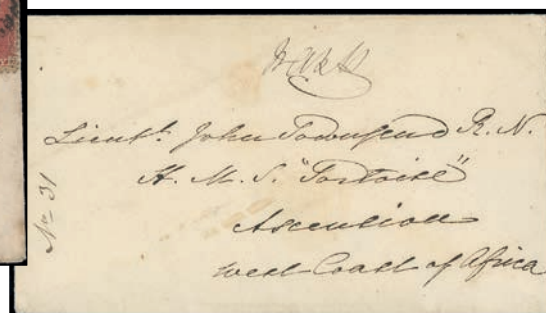 Lieut. John Townsend R. N.
H. M. S. "Tortoise"
Ascension
West Coast of Africa
No 31